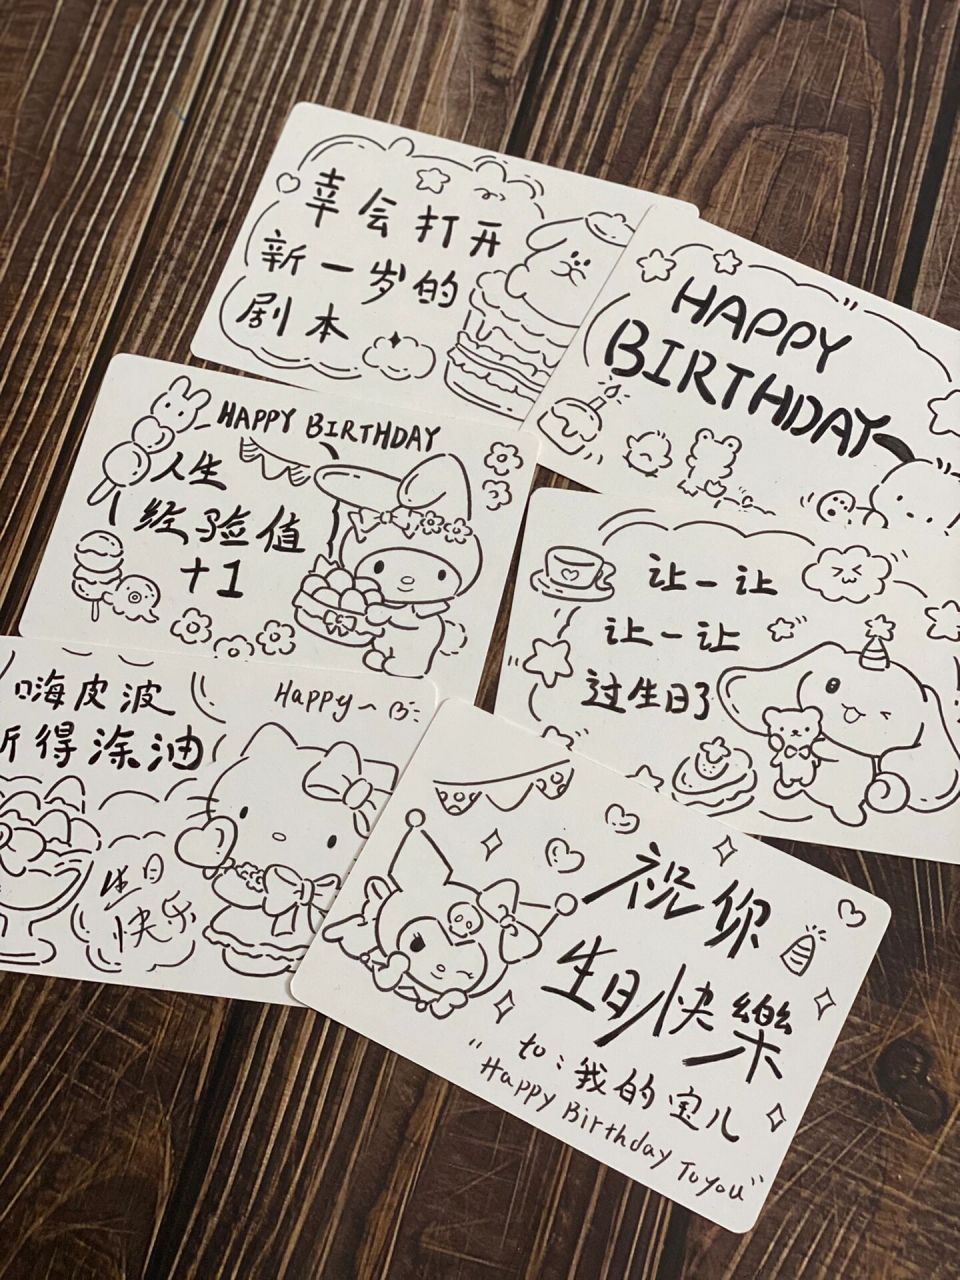 幸会打开
新一岁的
剧本
HAPPY
BIRTHDAY
HAPPY BIRTHDAY
人生
经验值
+1
让一让
让一让
过生日了
嗨皮波
得涂油
Happy~ B
生日
快乐
祝你
生日快樂
to:我的宝儿
"Happy Birthday To you"